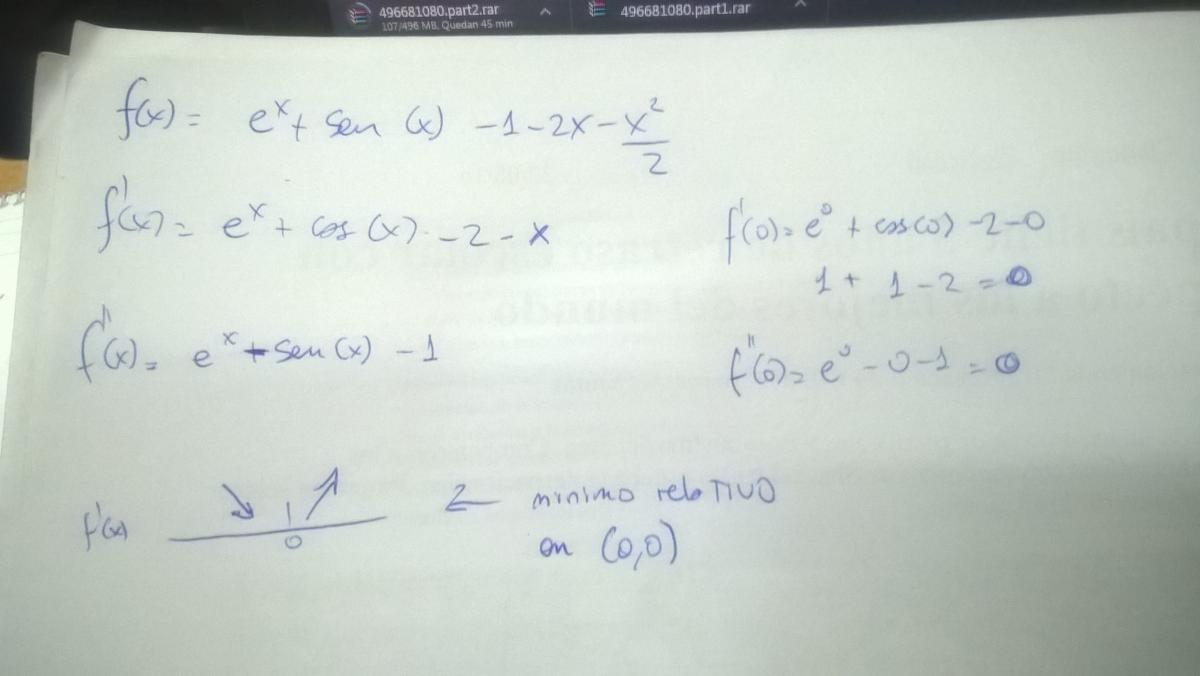 496681080.part2.rar
107/496 MB, Quedan 45 min
496681080.part1.rar
f(x) = e^x + sen (x) - 1 - 2x - x^2/2
f'(x) = e^x + cos (x) - 2 - x
f'(0) = e^0 + cos(0) - 2 - 0
1 + 1 - 2 = 0
f''(x) = e^x - sen (x) - 1
f''(0) = e^0 - 0 - 1 = 0
f'(x) ↘ | ↗
0
minimo relativo
en (0,0)